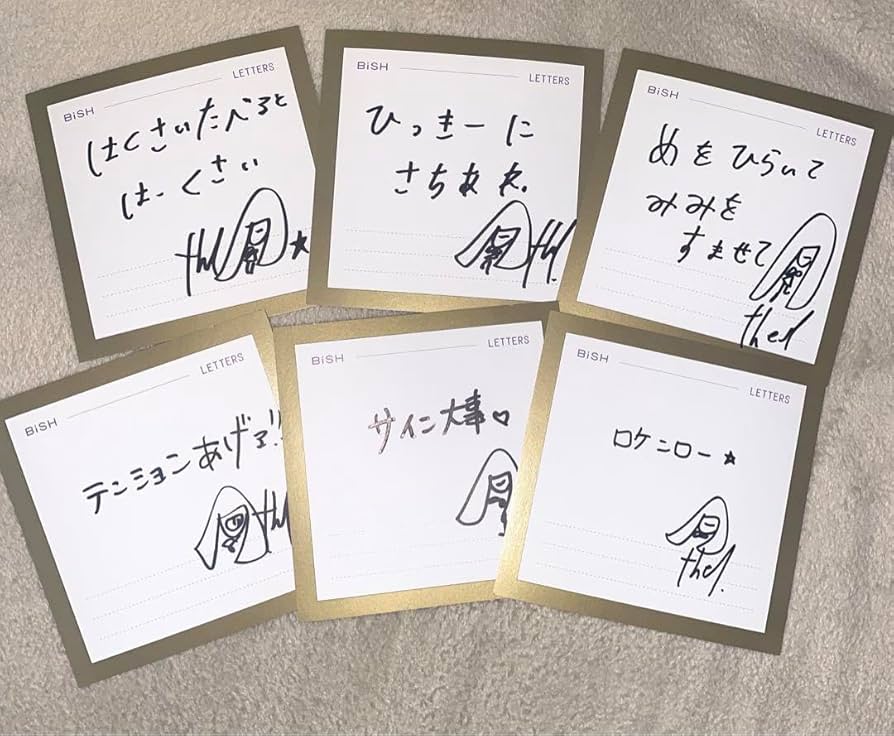 BiSH LETTERS
はくさいたべると
はーくさい
the!
BiSH LETTERS
ひっきーに
さちあれ.
th!.
BiSH LETTERS
めをひらいて
みみを
すませて
the!
BiSH LETTERS
テンションあげろ!!
th!
BiSH LETTERS
サイン大事♡
BiSH LETTERS
ロケンロー★
the!.